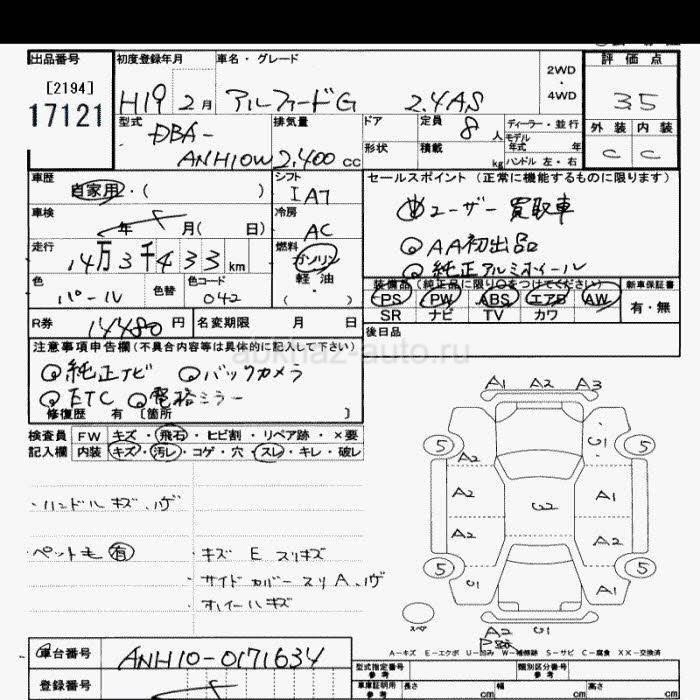 出品番号 初度登録年月 車名・グレード 評価点
[2194]
17121
H19 2月 アルファードG 2.4AS 2WD・4WD 3.5
型式 排気量 ドア 定員 ディーラー・並行 外装 内装
DBA- 8人 モデル年式 年
ANH10W 2,400cc 形状 積載 kg ハンドル 左・右 C C
車歴 シフト セールスポイント (正常に機能するものに限ります)
自家用・( ) IA7 ユーザー買取車
車検 冷房
年 月( 日) AC AA初出品
走行 燃料 純正アルミホイール
14万3千433km ガソリン
色 色替 色コード 軽油 装備品 (純正品に限り○をつけてください) 新車保証書
パール 042 ( ) PS PW ABS エアB AW 有・無
SR ナビ TV カワ
R券 14480円 名変期限 月 日 後日品
abkhaz-auto.ru
注意事項申告欄(不具合内容等は具体的に記入して下さい)
純正ナビ バックカメラ
ETC 電格ミラー
修復歴 有 〔箇所 〕
検査員 FW キズ・飛石・ヒビ割・リペア跡・×要
記入欄 内装 キズ・汚レ・コゲ・穴・スレ・キレ・破レ
・ハンドルキズ、ハゲ
・ペット毛 有 ・キズ E スリキズ
・サイドカバースリA、ハゲ
・ホイールキズ
A1 A2 A3
5 U1 5
A2
A2 A1
A2 A2
5 5
U1 A1
スペア A2 U1
A-キズ E-エクボ U-凹み W-補修跡 S-サビ C-腐食 XX-交換済
車台番号 ANH10-0171634
型式指定番号 参考 類別区分番号 参考
登録番号 車庫証明用 参考 長さ cm 幅 cm 高さ cm